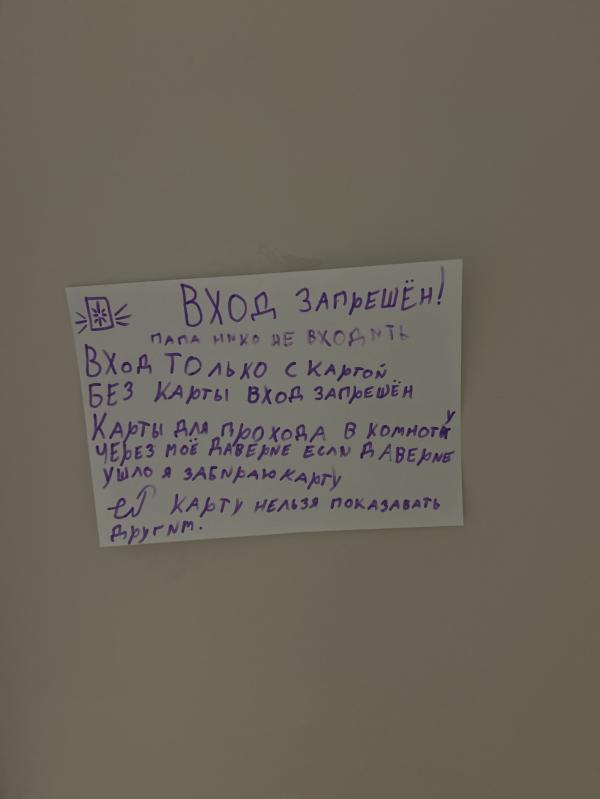 ВХОД ЗАПРЕШЁН!
ПАПА НИКО НЕ ВХОДИТЬ
ВХОД ТОЛЬКО С КАРТОЙ
БЕЗ КАРТЫ ВХОД ЗАПРЕШЁН
КАРТЫ ДЛЯ ПРОХОДА В КОМНОТУ
ЧЕРЕЗ МОЁ ДАВЕРИЕ ЕСЛИ ДАВЕРИЕ
УШЛО Я ЗАБИРАЮ КАРТУ
КАРТУ НЕЛЬЗЯ ПОКАЗАВАТЬ
ДРУГИМ.